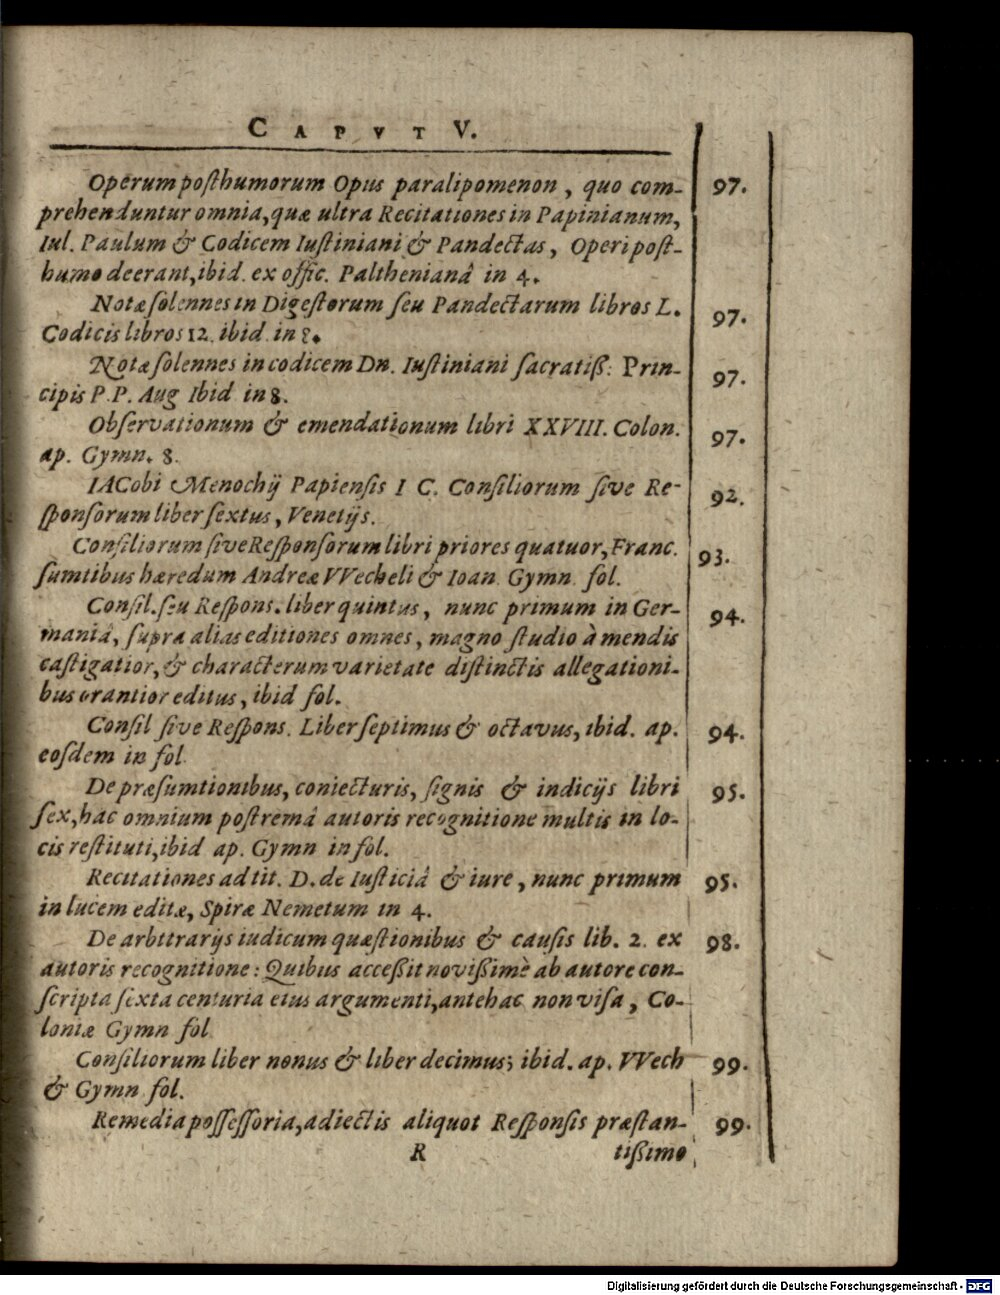 CAPVT V.
Operum posthumorum Opus paralipomenon, quo com- 97.
prehenduntur omnia, quæ ultra Recitationes in Papinianum,
Iul. Paulum & Codicem Iustiniani & Pandectas, Operi post-
humo deerant, ibid. ex offic. Palthenianâ in 4.
Notæ solennes in Digestorum seu Pandectarum libros L. 97.
Codicis libros 12. ibid. in 8.
Notæ solennes in codicem Dn. Iustiniani sacratiß: Prin- 97.
cipis P.P. Aug Ibid in 8.
Observationum & emendationum libri XXVIII. Colon. 97.
ap. Gymn. 8.
IACobi Menochij Papiensis I C. Consiliorum sive Re- 92.
sponsorum liber sextus, Venetijs.
Consiliorum sive Responsorum libri priores quatuor, Franc. 93.
sumtibus hæredum Andreæ VVecheli & Ioan. Gymn. fol.
Consil. seu Respons. liber quintus, nunc primum in Ger- 94.
maniâ, supra alias editiones omnes, magno studio à mendis
castigatior, & characterum varietate distinctis allegationi-
bus orantior editus, ibid fol.
Consil sive Respons. Liber septimus & octavus, ibid. ap. 94.
eosdem in fol
De præsumtionibus, coniecturis, signis & indicijs libri 95.
sex, hac omnium postremâ autoris recognitione multis in lo-
cis restituti, ibid ap. Gymn in fol.
Recitationes ad tit. D. de Iusticiâ & iure, nunc primum 95.
in lucem editæ, Spiræ Nemetum in 4.
De arbttrarijs iudicum quæstionibus & causis lib. 2. ex 98.
autoris recognitione: Quibus acceßit novißimè ab autore con-
scripta sexta centuria eius argumenti, antehac non visa, Co-
loniæ Gymn fol
Consiliorum liber nonus & liber decimus; ibid. ap. VVech 99.
& Gymn fol.
Remedia possessoria, adiectis aliquot Responsis præstan- 99.
R tißimo
Digitalisierung gefördert durch die Deutsche Forschungsgemeinschaft - DFG